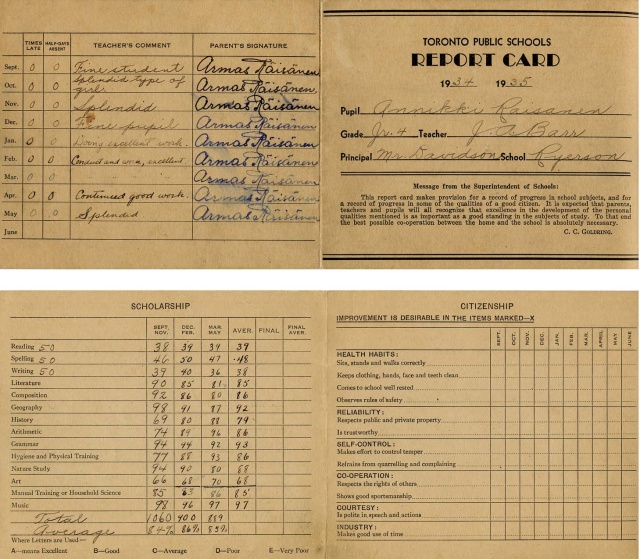 TIMES LATE HALF-DAYS ABSENT TEACHER'S COMMENT PARENT'S SIGNATURE
Sept. 0 0 Fine student Armas Räisänen
Oct. 0 0 Splendid type of girl. Armas Räisänen
Nov. 0 0 Splendid Armas Räisänen
Dec. 0 0 Fine pupil Armas Räisänen
Jan. 0 0 Doing excellent work. Armas Räisänen
Feb. 0 0 Conduct and work, excellent. Armas Räisänen
Mar. Armas Räisänen
Apr. 0 0 Continued good work. Armas Räisänen
May 0 0 Splendid Armas Räisänen
June
TORONTO PUBLIC SCHOOLS
REPORT CARD
1934 1935
Pupil Annikki Raisanen
Grade Jr. 4 Teacher J. A. Barr
Principal Mr. Davidson School Ryerson
Message from the Superintendent of Schools:
This report card makes provision for a record of progress in school subjects, and for
a record of progress in some of the qualities of a good citizen. It is expected that parents,
teachers and pupils will all recognize that excellence in the development of the personal
qualities mentioned is as important as a good standing in the subjects of study. To that end
the best possible co-operation between the home and the school is absolutely necessary.
C. C. GOLDRING.
SCHOLARSHIP
SEPT. NOV. DEC. FEB. MAR. MAY AVER. FINAL FINAL AVER.
Reading 50 38 39 39 39
Spelling 50 46 50 47 48
Writing 50 39 40 36 38
Literature 90 85 81 85
Composition 92 86 80 86
Geography 98 91 87 92
History 69 80 88 79
Arithmetic 74 89 96 86
Grammar 94 94 92 93
Hygiene and Physical Training 77 88 93 86
Nature Study 94 90 80 88
Art 66 68 70 68
Manual Training or Household Science 85 86 85
Music 98 96 97 97
Total 1060 889
Average 84% 86% 85%
Where Letters are Used—
A—means Excellent B—Good C—Average D—Poor E—Very Poor
CITIZENSHIP
IMPROVEMENT IS DESIRABLE IN THE ITEMS MARKED—X
SEPT. OCT. NOV. DEC. JAN. FEB. MAR. APRIL MAY JUNE
HEALTH HABITS:
Sits, stands and walks correctly
Keeps clothing, hands, face and teeth clean
Comes to school well rested
Observes rules of safety
RELIABILITY:
Respects public and private property
Is trustworthy
SELF-CONTROL:
Makes effort to control temper
Refrains from quarrelling and complaining
CO-OPERATION:
Respects the rights of others
Shows good sportsmanship
COURTESY:
Is polite in speech and actions
INDUSTRY:
Makes good use of time